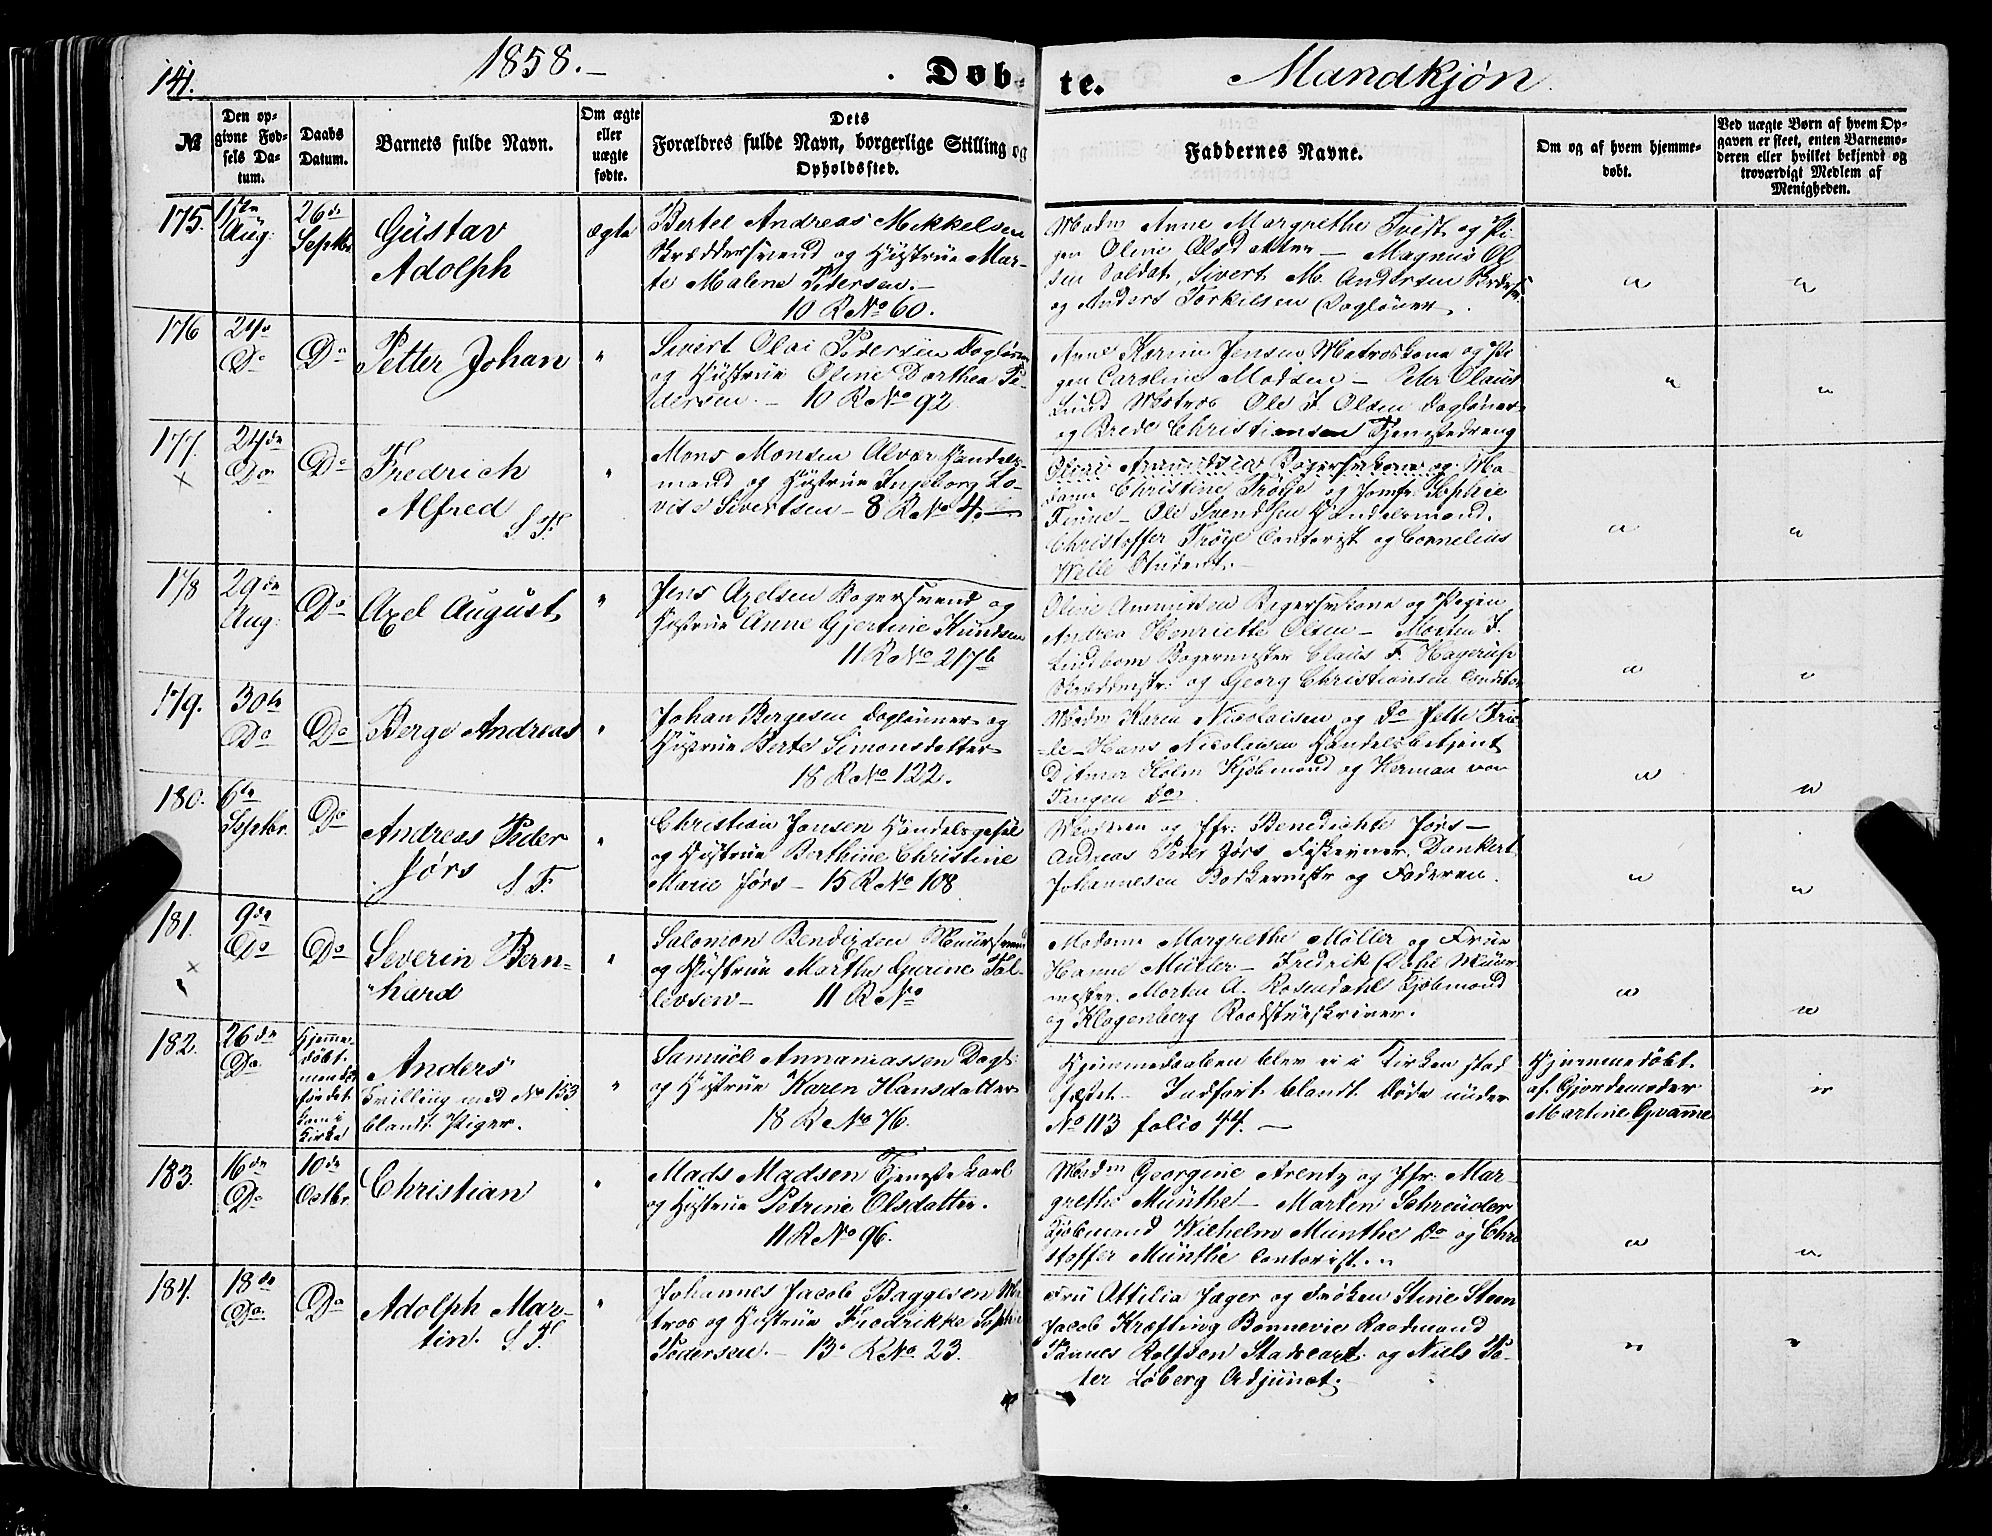 141.
1858.
Døb-
te.
Mandkjøn
№
Den op-
givne Fød-
sels Da-
tum.
Daabs
Datum.
Barnets fulde Navn.
Om ægte
eller
uægte
fødte.
Dets
Forældres fulde Navn, borgerlige Stilling og
Opholdssted.
Faddernes Navne.
Om og af hvem hjemme-
døbt.
Ved uægte Børn af hvem Op-
gaven er skeet, enten Barnemo-
deren eller hvilket bekjendt og
troværdigt Medlem af
Menigheden.
175.
17de
Aug:
26de
Septbr
Gustav
Adolph
ægte
Bertel Andreas Mikkelsen
Skræddersvend og Hustrue Mar-
te Malene Pedersen.
10 R No 60.
Madm Anne Margrethe Tvedt og Pi-
gen Oline Olsdatter — Magnus Ol-
sen Soldat, Sivert M. Andersen
og Anders Torkilsen Dagløner.
"
"
176
24de
Do
Do
Petter Johan
"
Sivert Olai Pedersen Dagløner
og Hustrue Oline Dorthea Pe-
dersen. — 10 R No 92
Anne Karine Jensen Matroskone og Pi-
gen Caroline Madsen — Peter Olaus
Lund Matros Ole J. Olsen Dagløner
og Brede Christiansen Tjenestedreng
"
"
177.
x
24de
Do
Do
Fredrich
Alfred S T.
"
Mons Monsen Alvær Handels-
mand og Hustrue Ingeborg Lo-
vise Sivertsen — 8 R No 4. —
Oline Amundsen Bagersvkone og Ma-
dame Christine Trøye og Jomfr. Sophie
— Ole Svendsen Handelsmand.
Christoffer Trøye Contorist og Cornelius
Welle Student. —
"
"
178
29de
Aug:
Do
Axel August
"
Jens Axelsen Bagersvend og
Hustrue Anne Gjertine Knudsen
11 R No 217b
Oline Amundsen Bagersvkone og Pigen
Andrea Henriette Olsen — Morten J.
Lindbom Bagermester Claus F. Hagerup
Skrædmstr: og Georg Christiansen Conditor
"
"
179.
30te
Do
Do
Berge Andreas
"
Johan Bergesen Dagløner og
Hustrue Berte Simonsdatter
18 R No 122.
Madm Karen Nicolaisen og Do Jette Frie-
le — Hans Nicolaisen Handelsbetjent
Ditmer Holm Kjøbmand og Herman von
Tangen Do.
"
"
180.
6te
Septbr.
Do
Andreas Peder
Jørs S T.
"
Christian Jansen Handelsgefel
og Hustrue Berthine Christine
Marie Jørs — 15 R No 108
Moderen og Jfr: Benedichte Jørs —
Andreas Peder Jørs Fiskevrær. Dankert
Johannesen Bøkermstr og Faderen.
"
"
181.
x
9de
Do
Do
Severin Bern-
hard
"
Salomon Bendixsen Muursvend
og Hustrue Marthe Gurine Tol-
levsen — 11 R No
Madame Margrethe Møller og Frue
Hanne Müller — Fredrik Dahl Muur-
mester. Morten A. Rosendahl Kjøbmand
og Klagenberg Raadstueskriver.
"
"
182.
26de
Do.
Hjemme-
døbt.
men døde
førdet
kom i
Kirke
Anders
Tvilling med No 153
blandt Piger.
"
Samuel Annaniassen Dagl:
og Hustrue Karen Hansdatter
18 R No 76.
Hjemmedaaben blev ei i Kirken stad
fæstet. Indført blandt Døde under
No 113 folio 44. —
Hjemmedøbt.
af Gjordemoder
Martine Gvamme
"
183.
16de
Do
10de
Octbr.
Christian
"
Mads Madsen Tjenestekarl
og Hustrue Petrine Olsdatter.
11 R No 96.
Madm Georgine Arentz og Jfr: Mar-
grethe Münthe — Marten Schreuder
Kjøbmand Wilhelm Münthe Do og Chri
stoffer Münthe Contorist.
"
"
184.
18de
Do.
Do
Adolph Mar-
tin. S T.
"
Johannes Jacob Baggesen Ma
tros og Hustrue Fredrikke Sophie
Pedersen. — 13. R No 23.
Fru Attilia Jager og Frøken Stine Steen
Jacob Kræfting Bonnevie Raadmand
Rolfsen Stadscapt. og Niels Pe-
ter Løberg Adjunct.
"
"